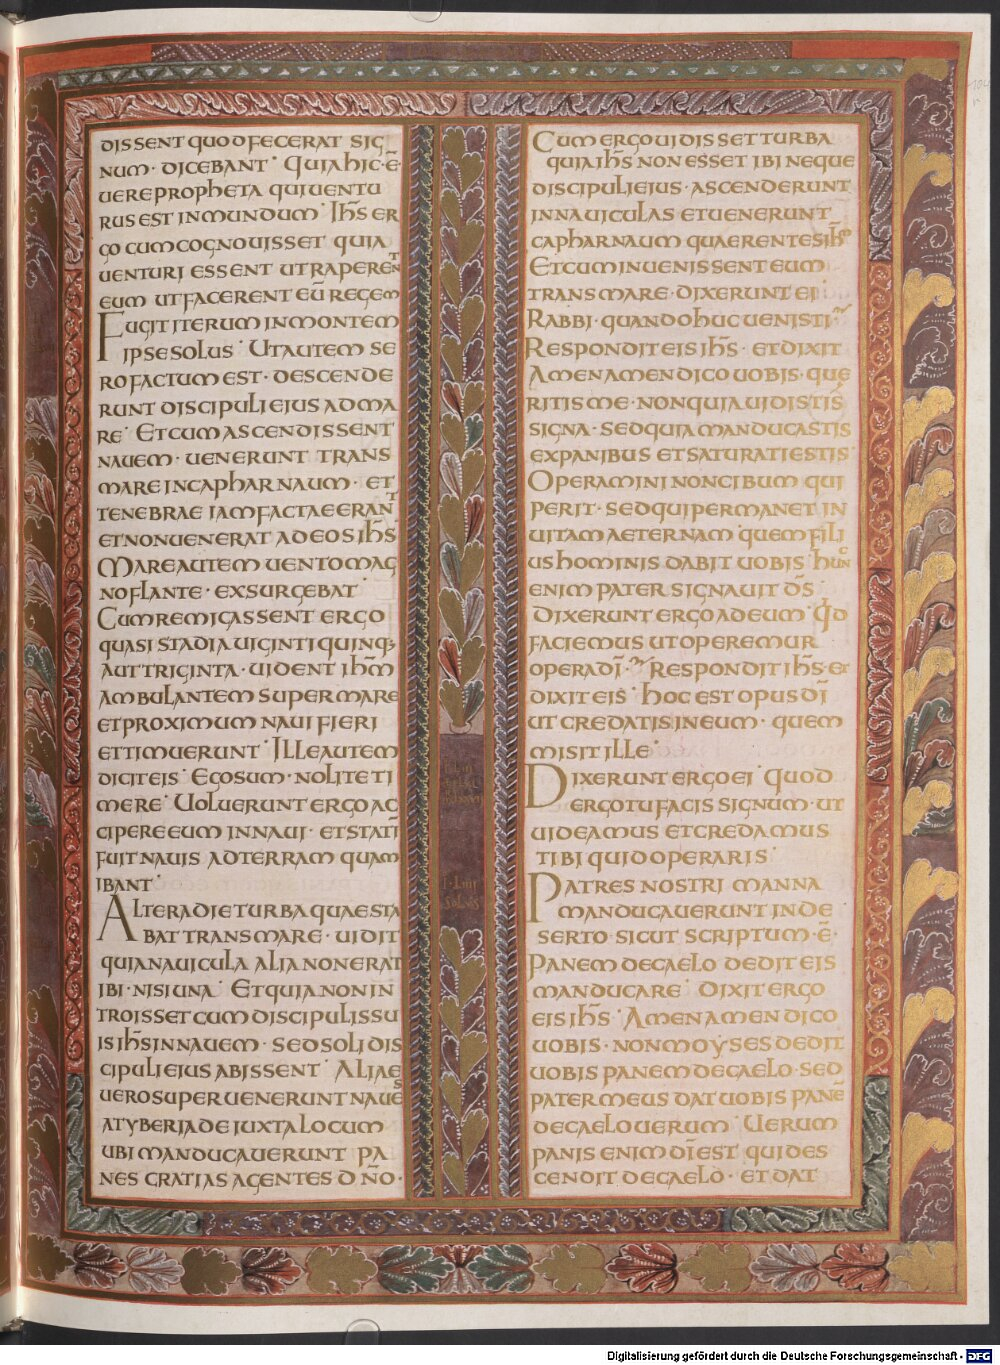 DISSENT QUOD FECERAT SIG
NUM · DICEBANT · QUIA HIC · Ē
UERE PROPHETA QUI UENTU
RUS EST IN MUNDUM · IHS̄ ER
GO CUM COGNOUISSET QUIA
UENTURI ESSENT UT RAPERENT
EUM UT FACERENT EŪ REGEM
FUGIT ITERUM IN MONTEM
IPSE SOLUS · UT AUTEM SE
RO FACTUM EST · DESCENDE
RUNT DISCIPULI EIUS AD MA
RE · ET CUM ASCENDISSENT
NAUEM · UENERUNT TRANS
MARE IN CAPHARNAUM · ET
TENEBRAE IAM FACTAE ERANT
ET NON UENERAT AD EOS IHS̄
MARE AUTEM UENTO MAG
NO FLANTE · EXSURGEBAT ·
CUM REMIGASSENT ERGO
QUASI STADIA UIGINTI QUINQ;
AUT TRIGINTA · UIDENT IHM̄
AMBULANTEM SUPER MARE
ET PROXIMUM NAUI FIERI
ET TIMUERUNT · ILLE AUTEM
DICIT EIS · EGO SUM · NOLITE TI
MERE · UOLUERUNT ERGO AC
CIPERE EUM IN NAUI · ET STATĪ
FUIT NAUIS AD TERRAM QUAM
IBANT ·
ALTERA DIE TURBA QUAE STA
BAT TRANS MARE · UIDIT
QUIA NAUICULA ALIA NON ERAT
IBI · NISI UNA · ET QUIA NON IN
TROISSET CUM DISCIPULIS SU
IS IHS̄ IN NAUEM · SED SOLI DIS
CIPULI EIUS ABISSENT · ALIAE
UERO SUPERUENERUNT NAUES
A TYBERIADE IUXTA LOCUM
UBI MANDUCAUERUNT PA
NES GRATIAS AGENTES DNO̅ ·
CUM ERGO UIDISSET TURBA
QUIA IHS̄ NON ESSET IBI NEQUE
DISCIPULI EIUS · ASCENDERUNT
IN NAUICULAS ET UENERUNT
CAPHARNAUM QUAERENTES IHM̄
ET CUM INUENISSENT EUM
TRANS MARE · DIXERUNT EI ·
RABBI · QUANDO HUC UENISTI ·
RESPONDIT EIS IHS̄ · ET DIXIT
AMEN AMEN DICO UOBIS · QUE
RITIS ME · NON QUIA UIDISTIS
SIGNA · SED QUIA MANDUCASTIS
EX PANIBUS ET SATURATI ESTIS ·
OPERAMINI NON CIBUM QUI
PERIT · SED QUI PERMANET IN
UITAM AETERNAM · QUEM FILI
US HOMINIS DABIT UOBIS · HUNC
ENIM PATER SIGNAUIT DS̄
DIXERUNT ERGO AD EUM · QD̄
FACIEMUS UT OPEREMUR
OPERA DĪ · RESPONDIT IHS̄ · ET
DIXIT EIS · HOC EST OPUS DĪ
UT CREDATIS IN EUM · QUEM
MISIT ILLE ·
DIXERUNT ERGO EI · QUOD
ERGO TU FACIS SIGNUM · UT
UIDEAMUS ET CREDAMUS
TIBI QUID OPERARIS ·
PATRES NOSTRI MANNA
MANDUCAUERUNT IN DE
SERTO SICUT SCRIPTUM · Ē ·
PANEM DE CAELO DEDIT EIS
MANDUCARE · DIXIT ERGO
EIS IHS̄ · AMEN AMEN DICO
UOBIS · NON MOYSES DEDIT
UOBIS PANEM DE CAELO · SED
PATER MEUS DAT UOBIS PANĒ
DE CAELO UERUM · UERUM
PANIS ENIM DĪ EST QUI DES
CENDIT DE CAELO · ET DAT
Digitalisierung gefördert durch die Deutsche Forschungsgemeinschaft - DFG